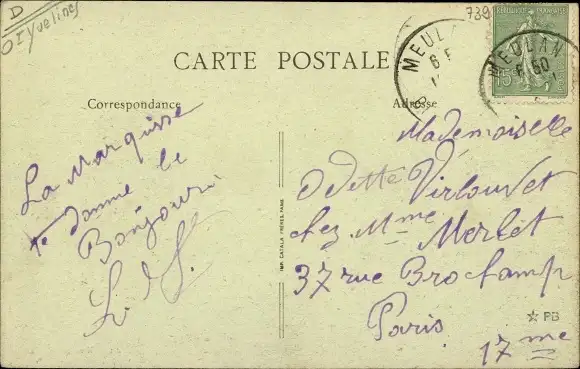 D
01 Yvelines
739
MEULAN
MEULAN
CARTE POSTALE
Correspondance
Adresse
La Marquise
te donne le
Bonjour
Mademoiselle
Odette Virlouvet
chez Mme Merlet
37 rue Brochamp
Paris
17me
IMP. CATALA FRÈRES, PARIS
PB